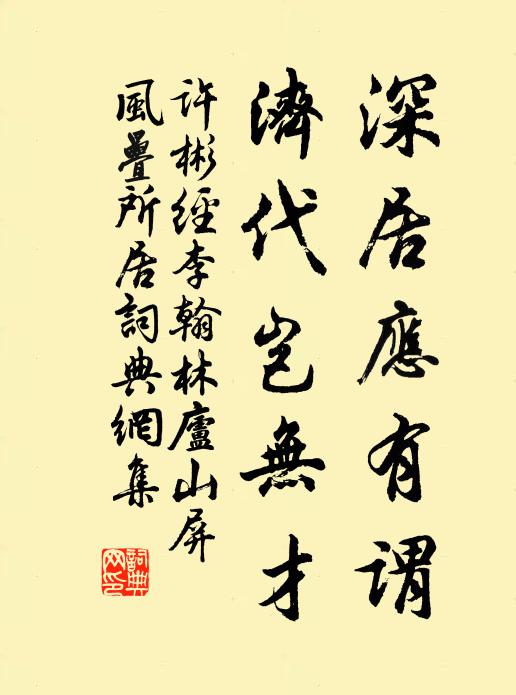 深居應有謂
濟代豈無才
許彬經李翰林廬山屏
風疊所居詞典網集
詞典
网印